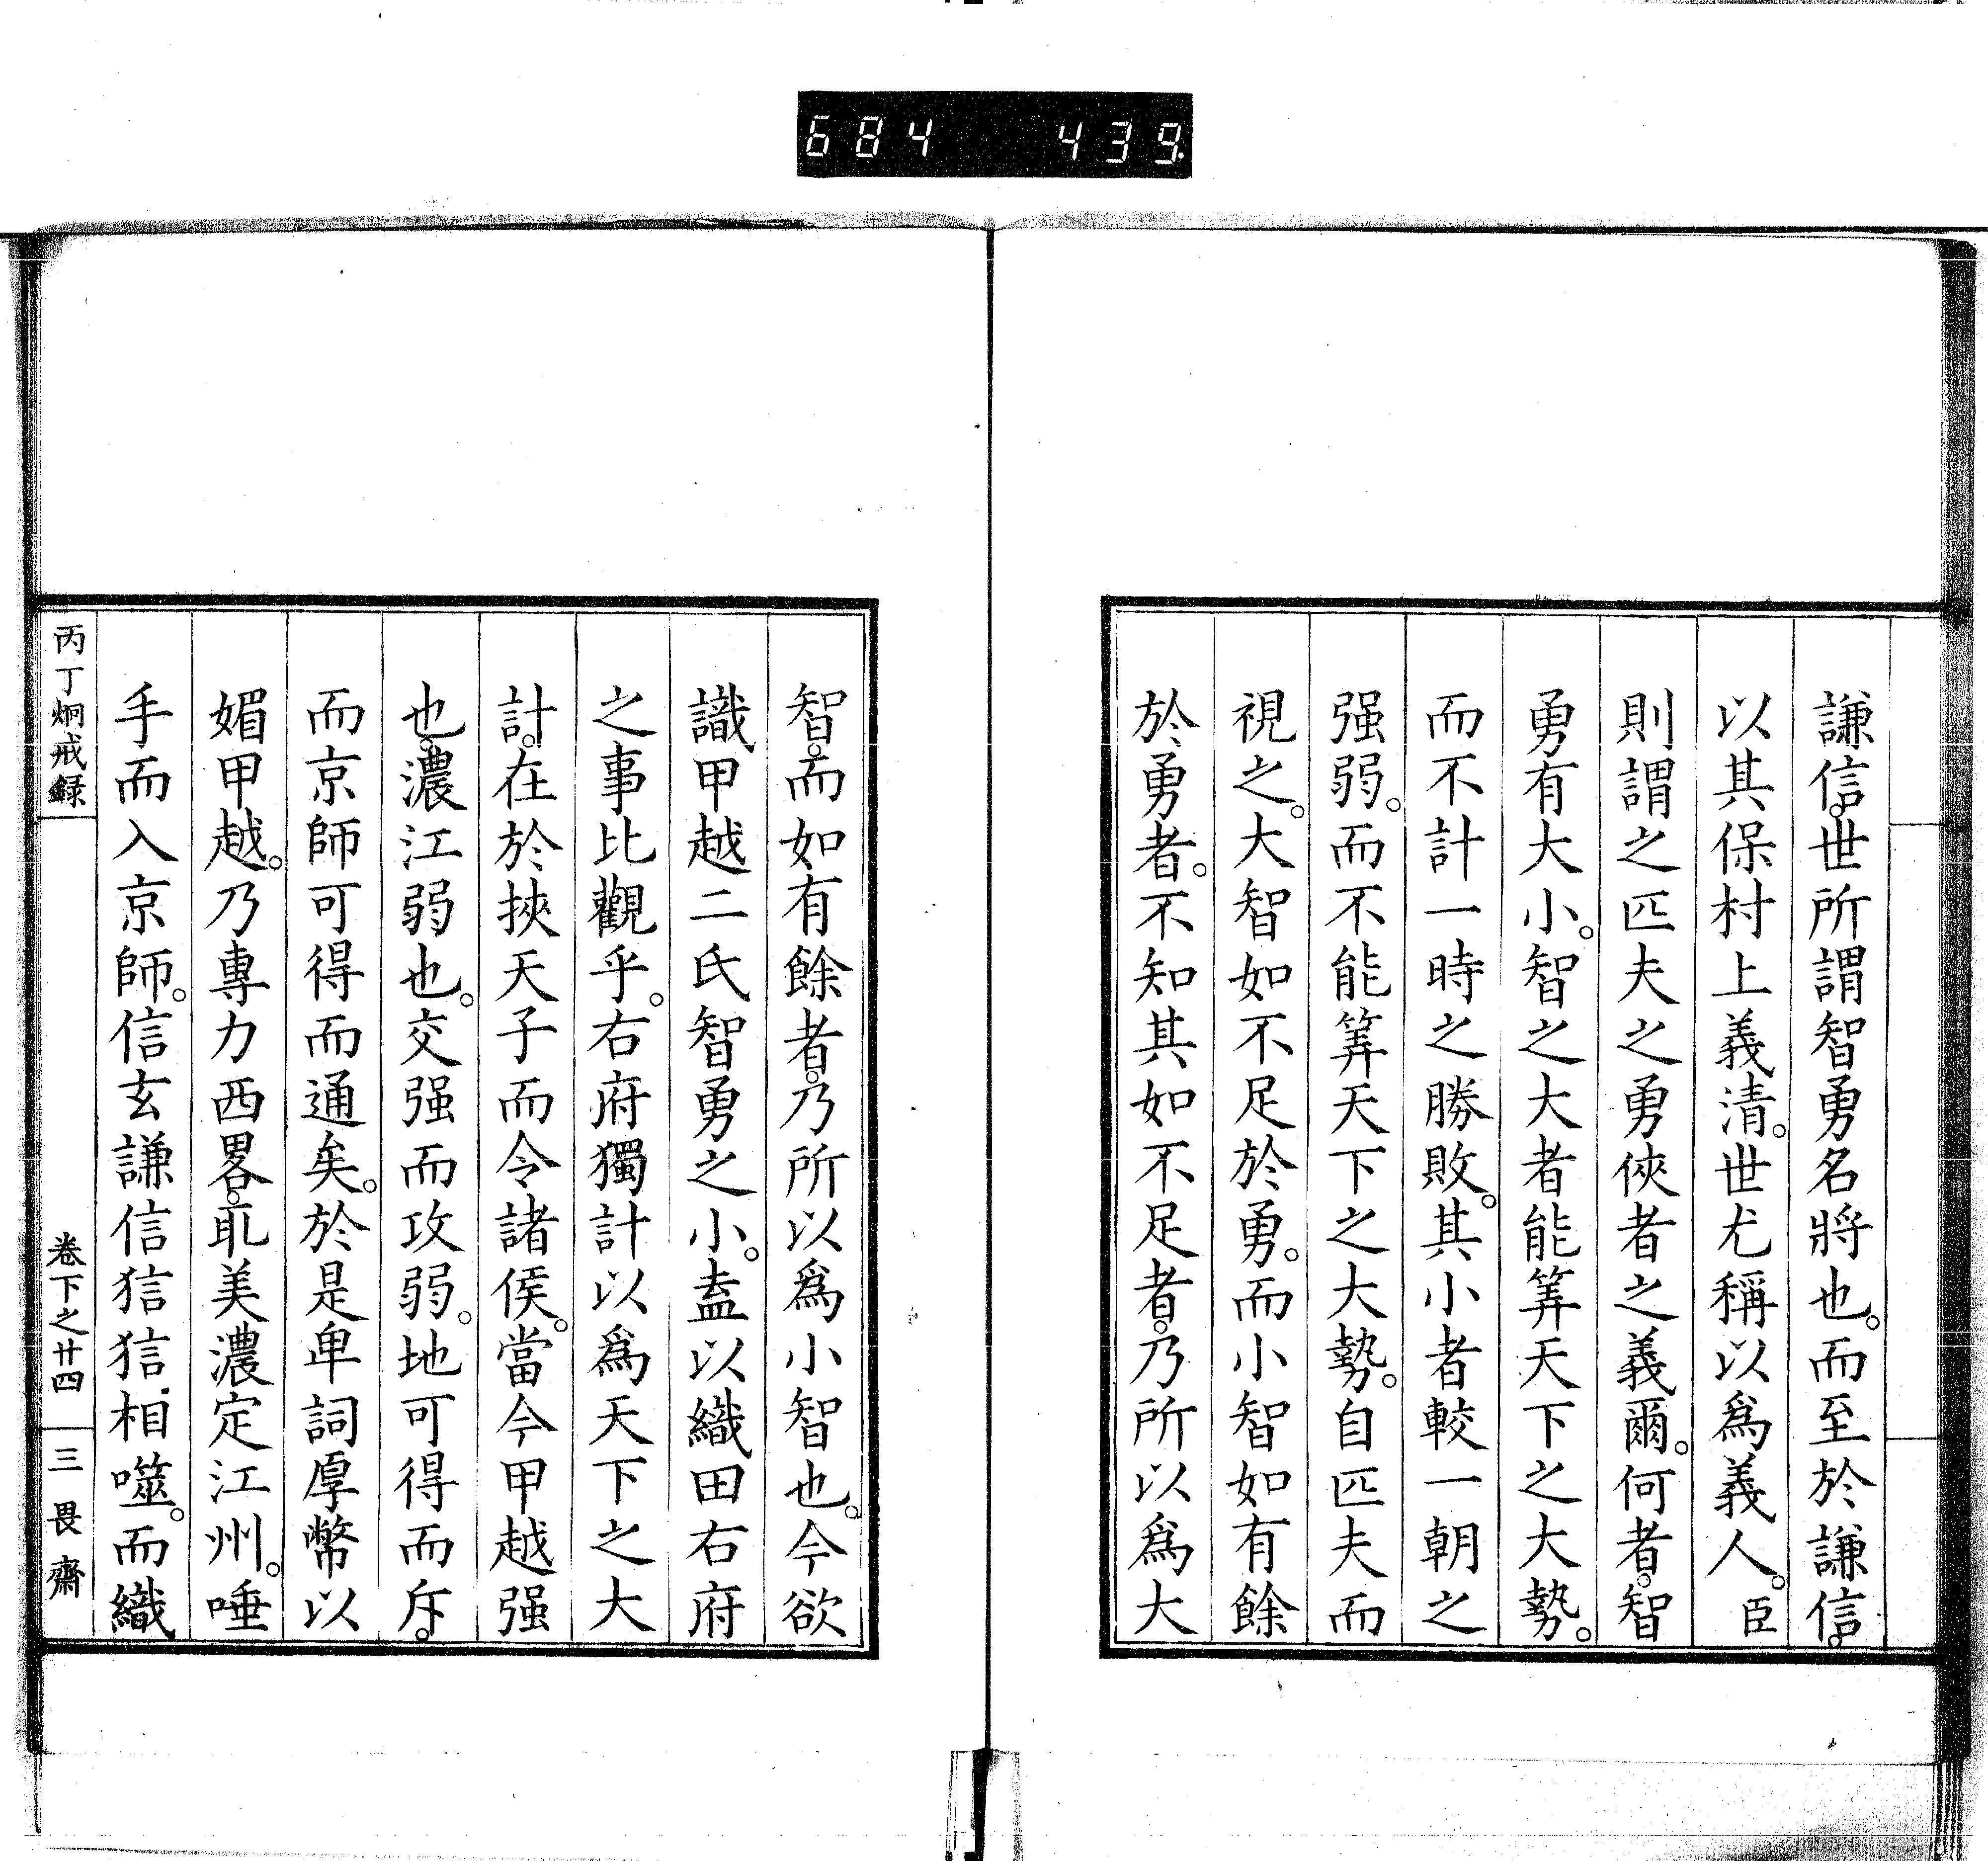 684 439
謙信。世所謂智勇名將也。而至於謙信。
以其保村上義清。世尤稱以爲義人。臣
則謂之匹夫之勇俠者之義爾。何者。智
勇有大小。智之大者能筭天下之大勢。
而不計一時之勝敗。其小者較一朝之
强弱。而不能筭天下之大勢。自匹夫而
視之。大智如不足於勇。而小智如有餘
於勇者。不知其如不足者。乃所以爲大
智。而如有餘者。乃所以爲小智也。今欲
識甲越二氏智勇之小。盍以織田右府
之事比觀乎。右府獨計以爲天下之大
計。在於挾天子而令諸侯。當今甲越强
也。濃江弱也。交强而攻弱。地可得而斥。
而京師可得而通矣。於是卑詞厚幣以
媚甲越。乃專力西畧。取美濃定江州。唾
手而入京師。信玄謙信狺狺相噬。而織
丙丁炯戒録 卷下之廿四 三畏齋